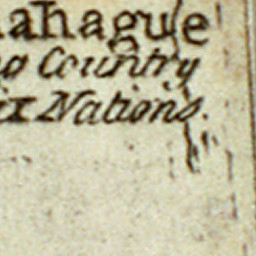 ahague
Country
ix Nations.